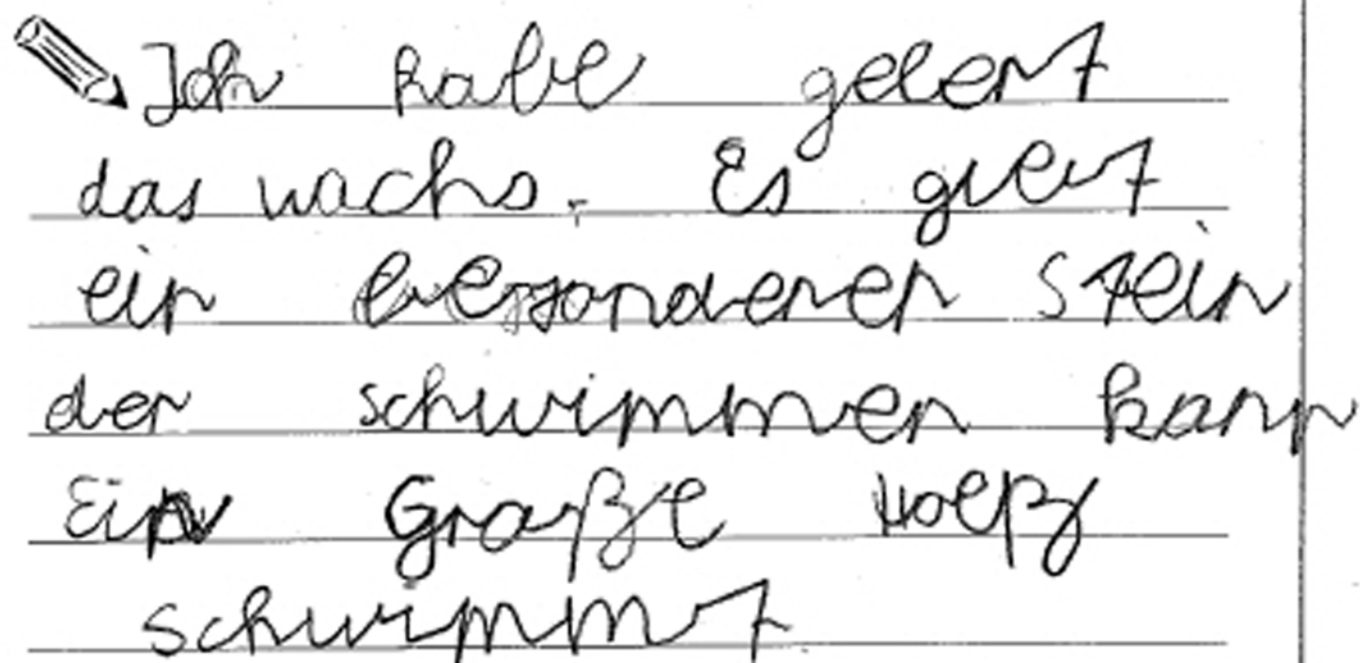 Ich habe gelernt
das wachs. Es giebt
ein besonderer Stein
der schwimmen kann
Ein Große Holz
schwimmt